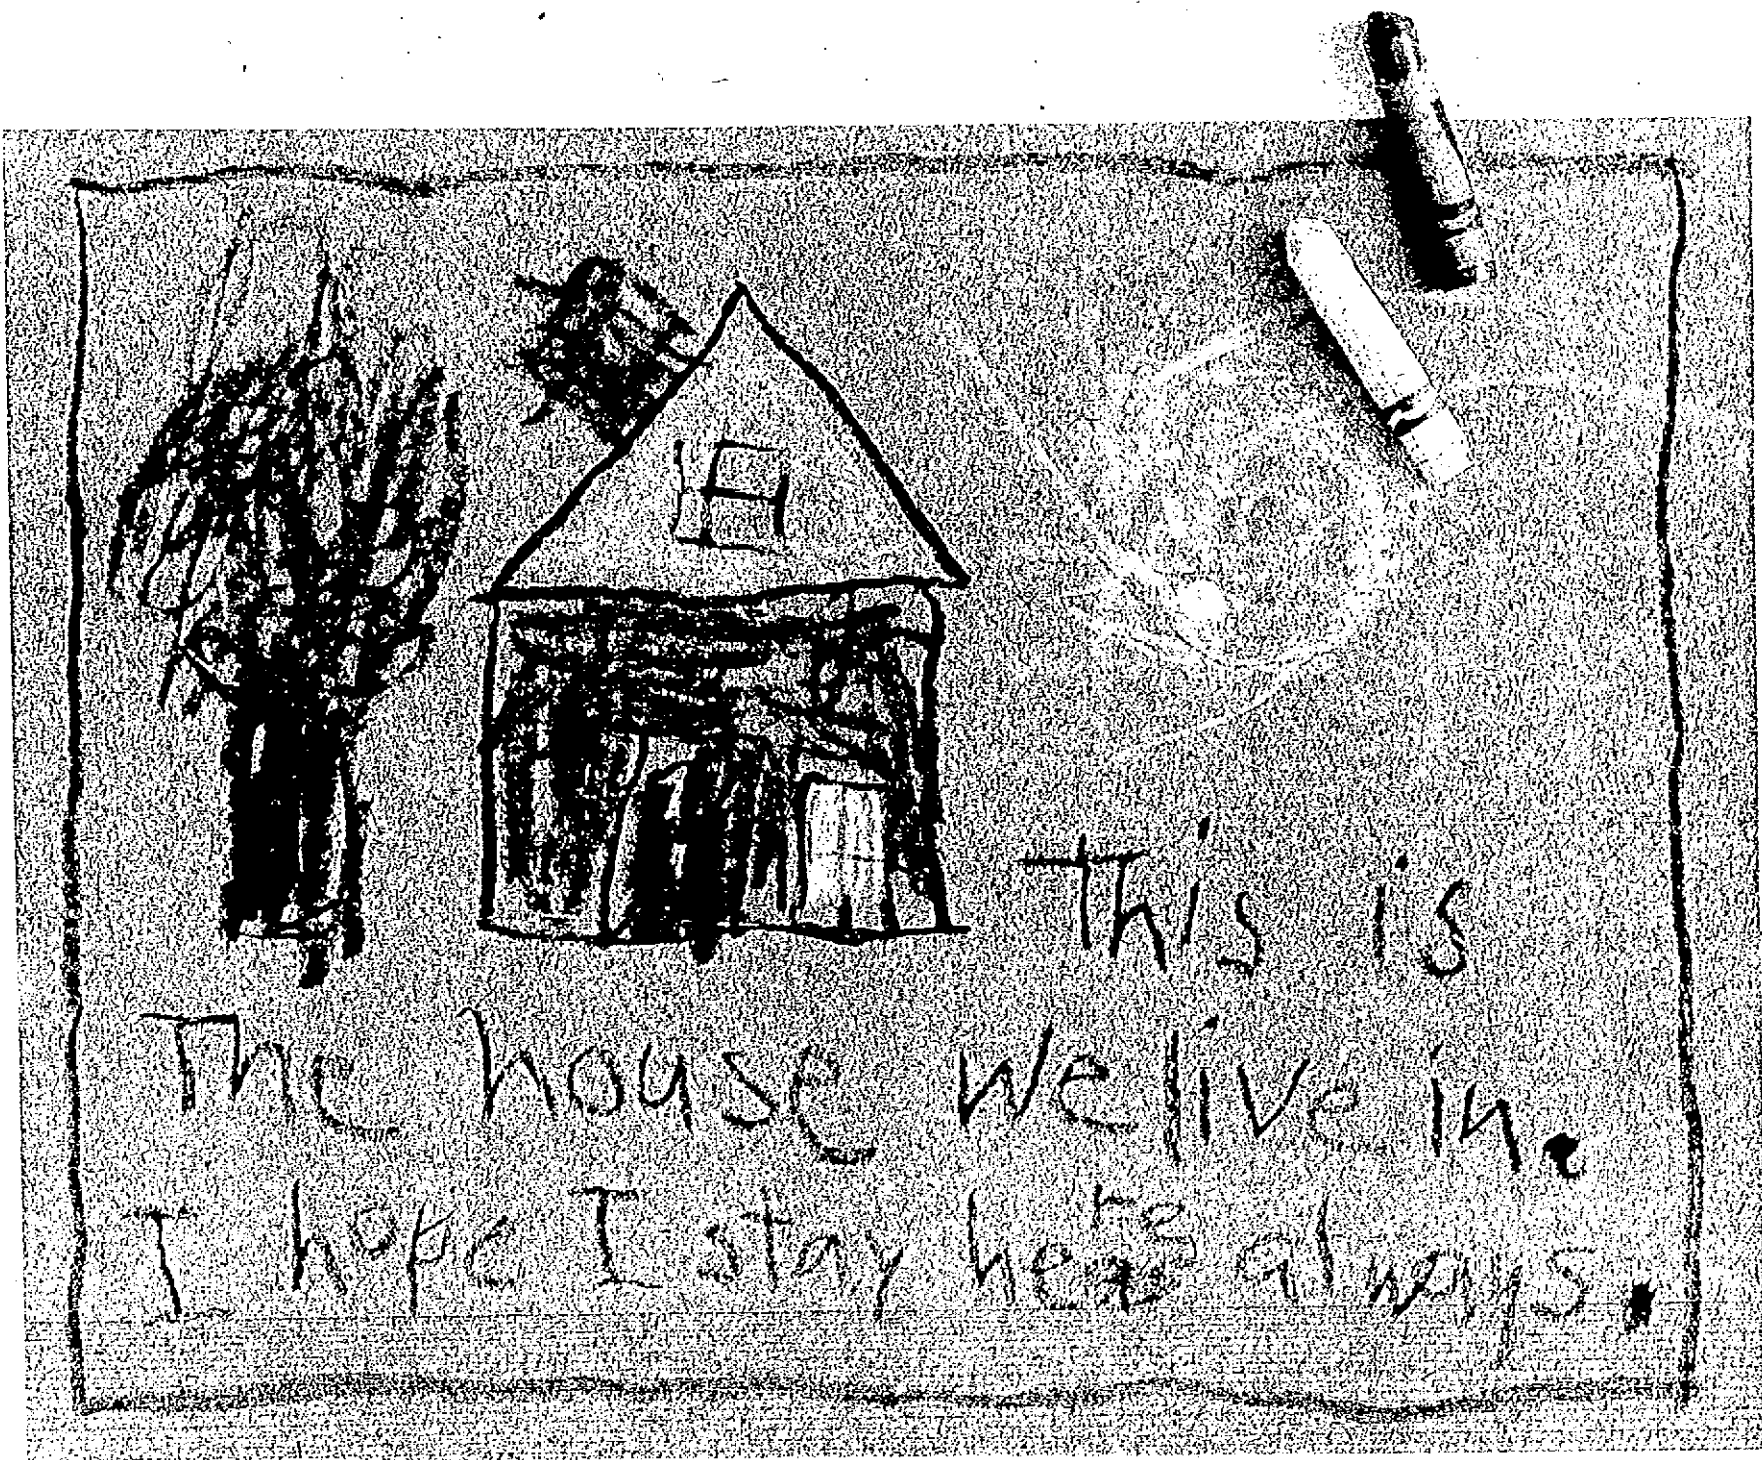 This is
The house we live in.
I hope I stay here always.